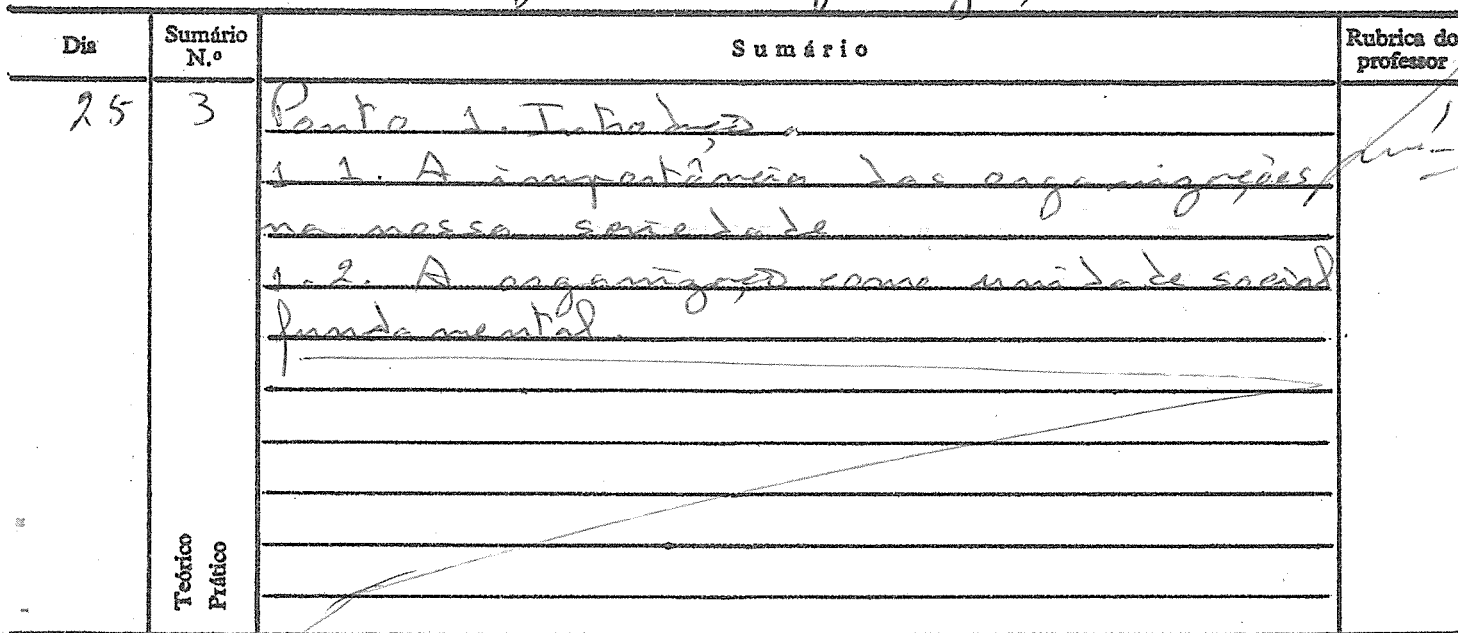 Dia Sumário N.º Sumário Rubrica do professor
25 3 Ponto 1. Introdução.
1 1. A importância das organizações,
na nossa sociedade
1.2. A organização como unidade social
fundamental.
Teórico
Prático